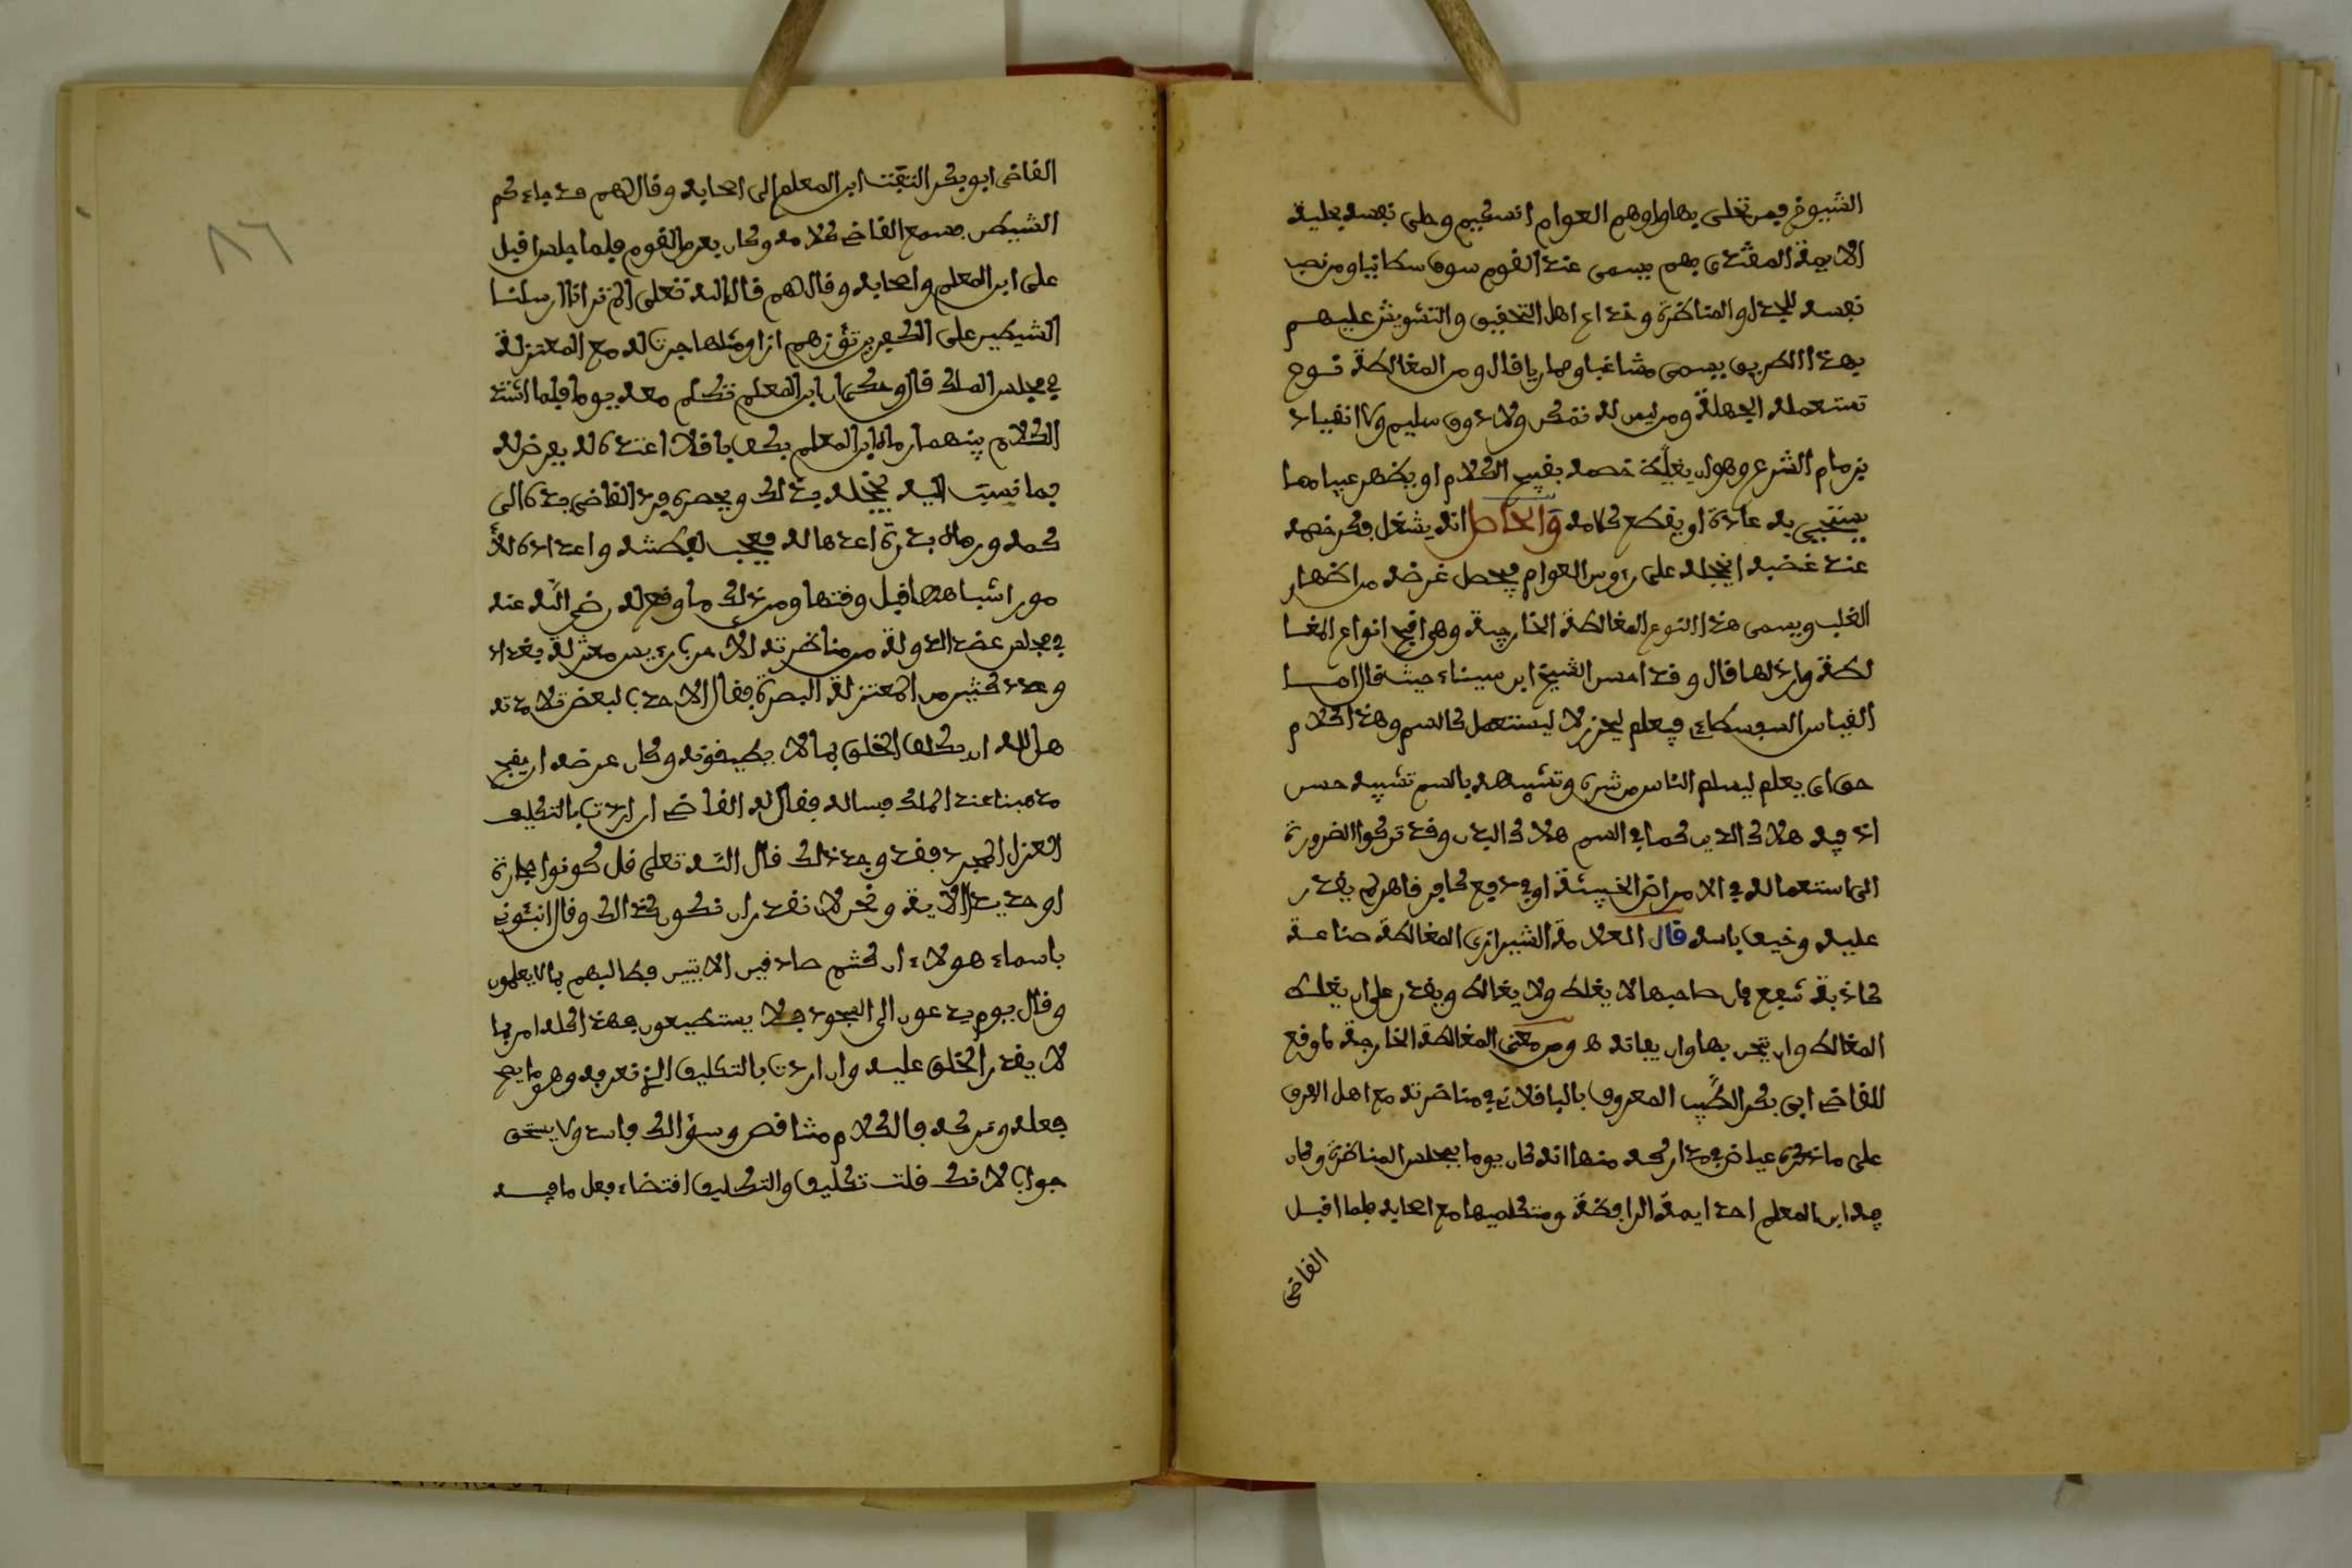 الشيوخ فمن تحلى بها واوهم العوام انه حكيم وحلى نفسه بحلية
الايمة المقتدى بهم يسمى عند القوم سوفسطائيا ومن نصب
نفسه للجدل والمناظرة وخداع اهل التحقيق والتشويش عليهم
بهذا الطريق يسمى مشاغبا ومماريا قال ومن المغالطة نوع
تستعمله الجهلة ومن ليس له تفكر ولا ذوق سليم ولا انقياد
بزمام الشرع وهو ان يغلظ خصمه بقبيح الكلام او يظهر عيبا مما
يستحيي به عادة او يقطع كلامه والحاصل انه يشغل فكر خصمه
عند غضبه اخجله على رءوس العوام فيحصل غرضه من اظهار
الغلب ويسمى هذا النوع المغالطة الخارجية وهي اقبح انواع المغا
لطة وارذلها قال وقد احسن الشيخ ابن سيناء حيث قال اما
القياس السوفسطاءي فيعلم ليحرز لا ليستعمل كالسم وهذا كلام
حق اي يعلم ليسلم الناس من شره وتشبيهه بالسم تشبيه حسن
اذ فيه هلاك الدين كما في السم هلاك البدن وقد تركوا الضرورة
الى استعماله في الامراض الخبيثة او في دفع كافر قاهر لم يقدر
عليه وخيف باسه قال العلامة الشيرازي المغالطة صناعة
كاذبة تنفع فان صاحبها لا يغلط ولا يغالط ويقدر على ان يغلط
المغالط وان يمتحن بها وان يعاند ه ومن معنى المغالطة الخارجة ما وقع
للقاضي ابي بكر الطيب المعروف بالباقلاني في مناظرته مع اهل الفرق
على ما ذكره عياض في مداركه منها انه كان يوما بمجلس المناظرة وكان
فيه ابن المعلم احد ايمة الرافضة ومتكلميها مع اصحابه فلما اقبل
القاضي
القاضي ابو بكر التفت ابن المعلم الى اصحابه وقال لهم قد جاءكم
الشيطن فسمع القاضي كلامه وكان بعد من القوم فلما جلس اقبل
على ابن المعلم واصحابه وقال لهم قال الله تعلى الم تر انا ارسلنا
الشيطين على الكفرين تؤزهم ازا ومثلها جرت له مع المعتزلة
في مجلس الملك قال وحكي ان ابن المعلم تكلم معه يوما فلما اشتد
الكلام بينهما رماه ابن المعلم بكف باقلا اعده له يعرض له
بما نسبت اليه ليخجله بذلك ويحصره فرد القاضي يده الى
كمه ورماه بدرة اعدها له فعجب لفطنته واعداده للأ
مور اشباهها قبل وقتها ومن ذلك ما وقع له رضي الله عنه
في مجلس عضد الدولة من مناظرته الاحدب رييس معتزلة بغداد
وعدد كثير من المعتزلة البصرة فقال الاحدب لبعض تلامذته
هل لله ان يكلف الخلق بما لا يطيقونه وكان غرضه ان يقبح
مذهبنا عند الملك فساله فقال له القاضي ان اردت بالتكليف
القول المجرد فقد وجد ذلك قال الله تعلى قل كونوا حجارة
او حديدا الاية ونحن لا نقدر ان نكون كذلك وقال انبئوني
باسماء هولاء ان كنتم صادقين الايتين فطالبهم بما لا يعلمون
وقال يوم يدعون الى السجود فلا يستطيعون فهذا كله امر بما
لا يقدر الخلق عليه وان اردت بالتكليف الذي نعرفه وهو ما يصح
فعله وتركه فالكلام متناقض وسؤالك فاسد ولا يستحق
جوابا لانك قلت تكليف والتكليف اقتضاء فعل ما فيه